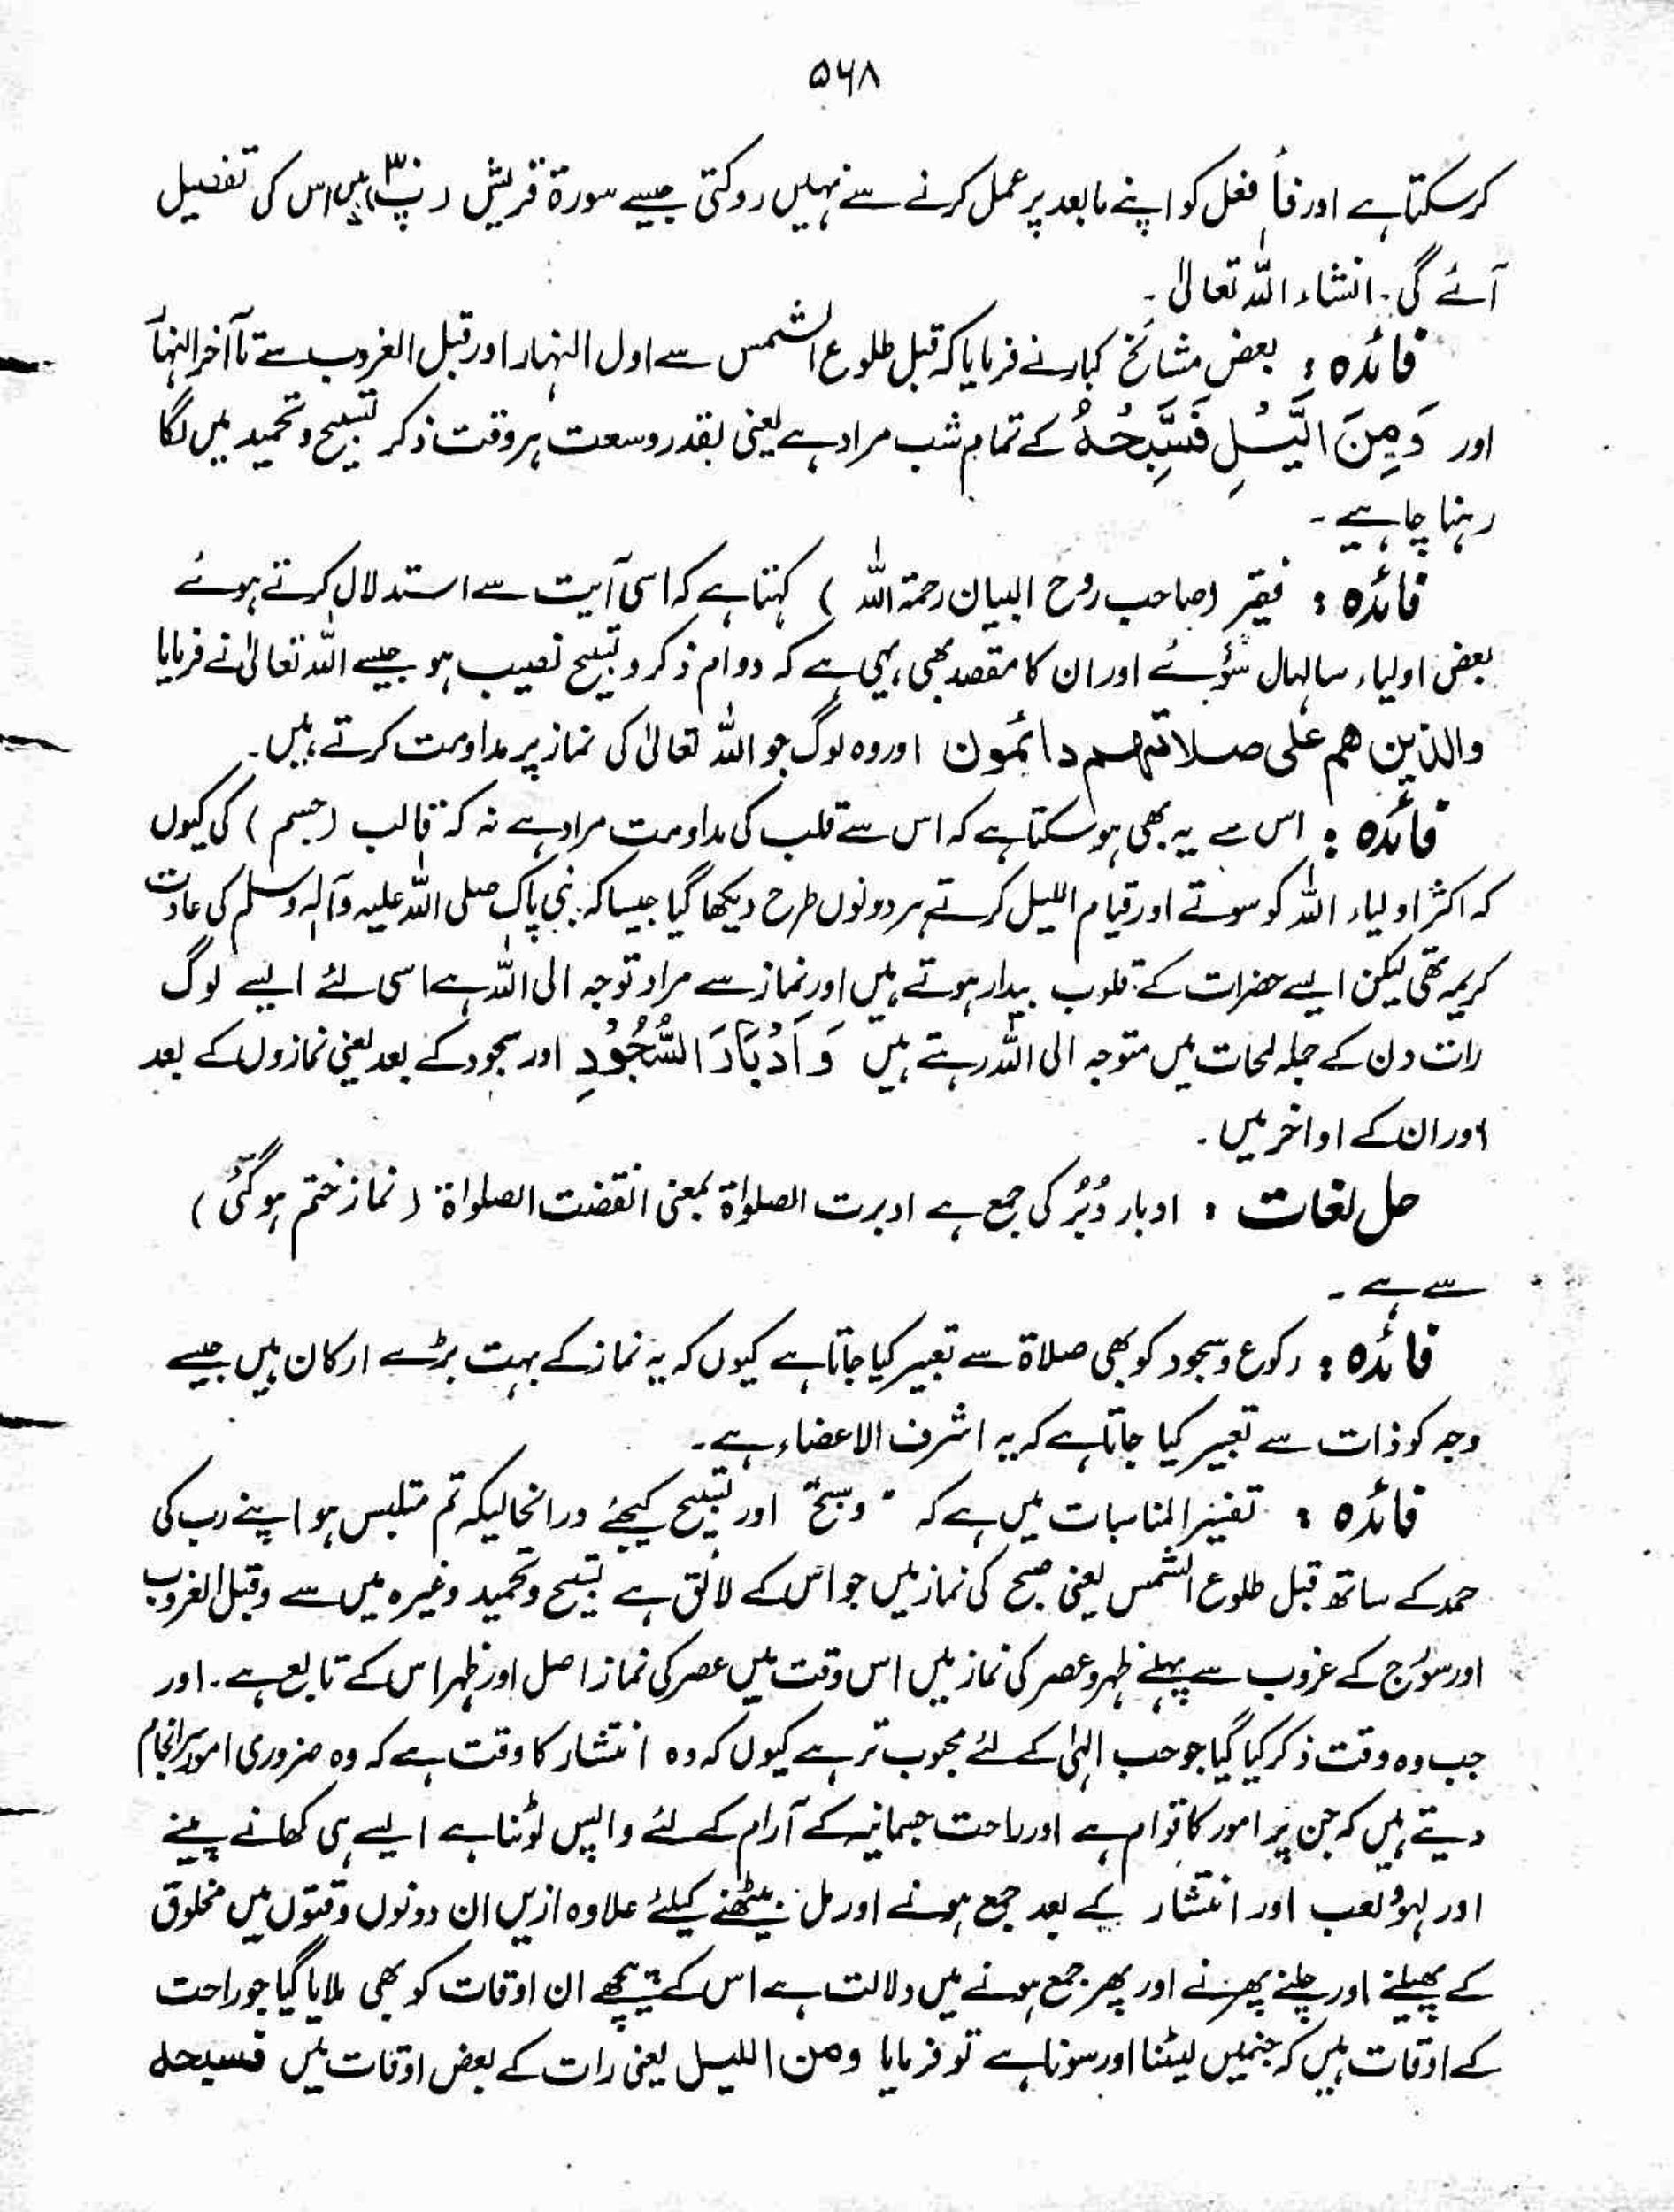 ۵۶۸
کرسکتا ہے اور فأ فعل کو اپنے مابعد پر عمل کرنے سے نہیں روکتی جیسے سورۃ قریش (پ۳۰) میں اس کی تفصیل
آئے گی۔ انشاء اللہ تعالیٰ۔
فائدہ : بعض مشائخ کبار نے فرمایا کہ قبل طلوع الشمس سے اول النہار اور قبل الغروب سے تا آخر النہار
اور وَمِنَ الَّیْلِ فَسَبِّحْہُ کے تمام شب مراد ہے یعنی بقدر وسعت ہر وقت ذکر تسبیح و تحمید میں لگا
رہنا چاہیے۔
فائدہ : فقیر (صاحب روح البیان رحمۃ اللہ ) کہتا ہے کہ اسی آیت سے استدلال کرتے ہوئے
بعض اولیاء سالہال سوئے اور ان کا مقصد بھی یہی ہے کہ دوام ذکر و تسبیح نصیب ہو جیسے اللہ تعالیٰ نے فرمایا
والذین ھم علی صلاتھم دائمون اور وہ لوگ جو اللہ تعالیٰ کی نماز پر مداومت کرتے ہیں۔
فائدہ : اس سے یہ بھی ہوسکتا ہے کہ اس سے قلب کی مداومت مراد ہے نہ کہ قالب (جسم ) کی کیوں
کہ اکثر اولیاء اللہ کو سوتے اور قیام اللیل کرتے ہر دونوں طرح دیکھا گیا جیسا کہ نبی پاک صلی اللہ علیہ وآلہ وسلم کی عادت
کریمہ تھی لیکن ایسے حضرات کے قلوب بیدار ہوتے ہیں اور نماز سے مراد توجہ الی اللہ ہے اسی لئے ایسے لوگ
رات دن کے جملہ لمحات میں متوجہ الی اللہ رہتے ہیں وَ اَدْبَارَ السُّجُوْدِ اور سجود کے بعد یعنی نمازوں کے بعد
اور ان کے اواخر میں۔
حل لغات : ادبار دُبُر کی جمع ہے ادبرت الصلواۃ بمعنی انقضت الصلواۃ (نماز ختم ہوگئی )
سے ہے۔
فائدہ : رکوع و سجود کو بھی صلاۃ سے تعبیر کیا جاتا ہے کیوں کہ یہ نماز کے بہت بڑے ارکان ہیں جیسے
وجہ کو ذات سے تعبیر کیا جاتا ہے کہ یہ اشرف الاعضاء ہے۔
فائدہ : تفسیر المناسبات میں ہے کہ "وسبح" اور تسبیح کیجئے درانحالیکہ تم متلبس ہو اپنے رب کی
حمد کے ساتھ قبل طلوع الشمس یعنی صبح کی نماز میں جو اس کے لائق ہے تسبیح و تحمید وغیرہ میں سے وقبل الغروب
اور سورج کے غروب سے پہلے ظہر و عصر کی نماز میں اس وقت میں عصر کی نماز اصل اور ظہر اس کے تابع ہے۔ اور
جب وہ وقت ذکر کیا گیا جو حب الہٰی کے لئے محبوب تر ہے کیوں کہ وہ انتشار کا وقت ہے کہ وہ ضروری امور سرانجام
دیتے ہیں کہ جن پر امور کا قوام ہے اور راحت جسمانیہ کے آرام کے لئے واپس لوٹنا ہے ایسے ہی کھانے پینے
اور لہو و لعب اور انتشار کے بعد جمع ہونے اور مل بیٹھنے کیلئے علاوہ ازیں ان دونوں وقتوں میں مخلوق
کے پھیلنے اور چلنے پھرنے اور پھر جمع ہونے میں دلالت ہے اس کے پیچھے ان اوقات کو بھی ملایا گیا جو راحت
کے اوقات ہیں کہ جنمیں لیٹنا اور سونا ہے تو فرمایا ومن اللیل یعنی رات کے بعض اوقات میں فسبحہ